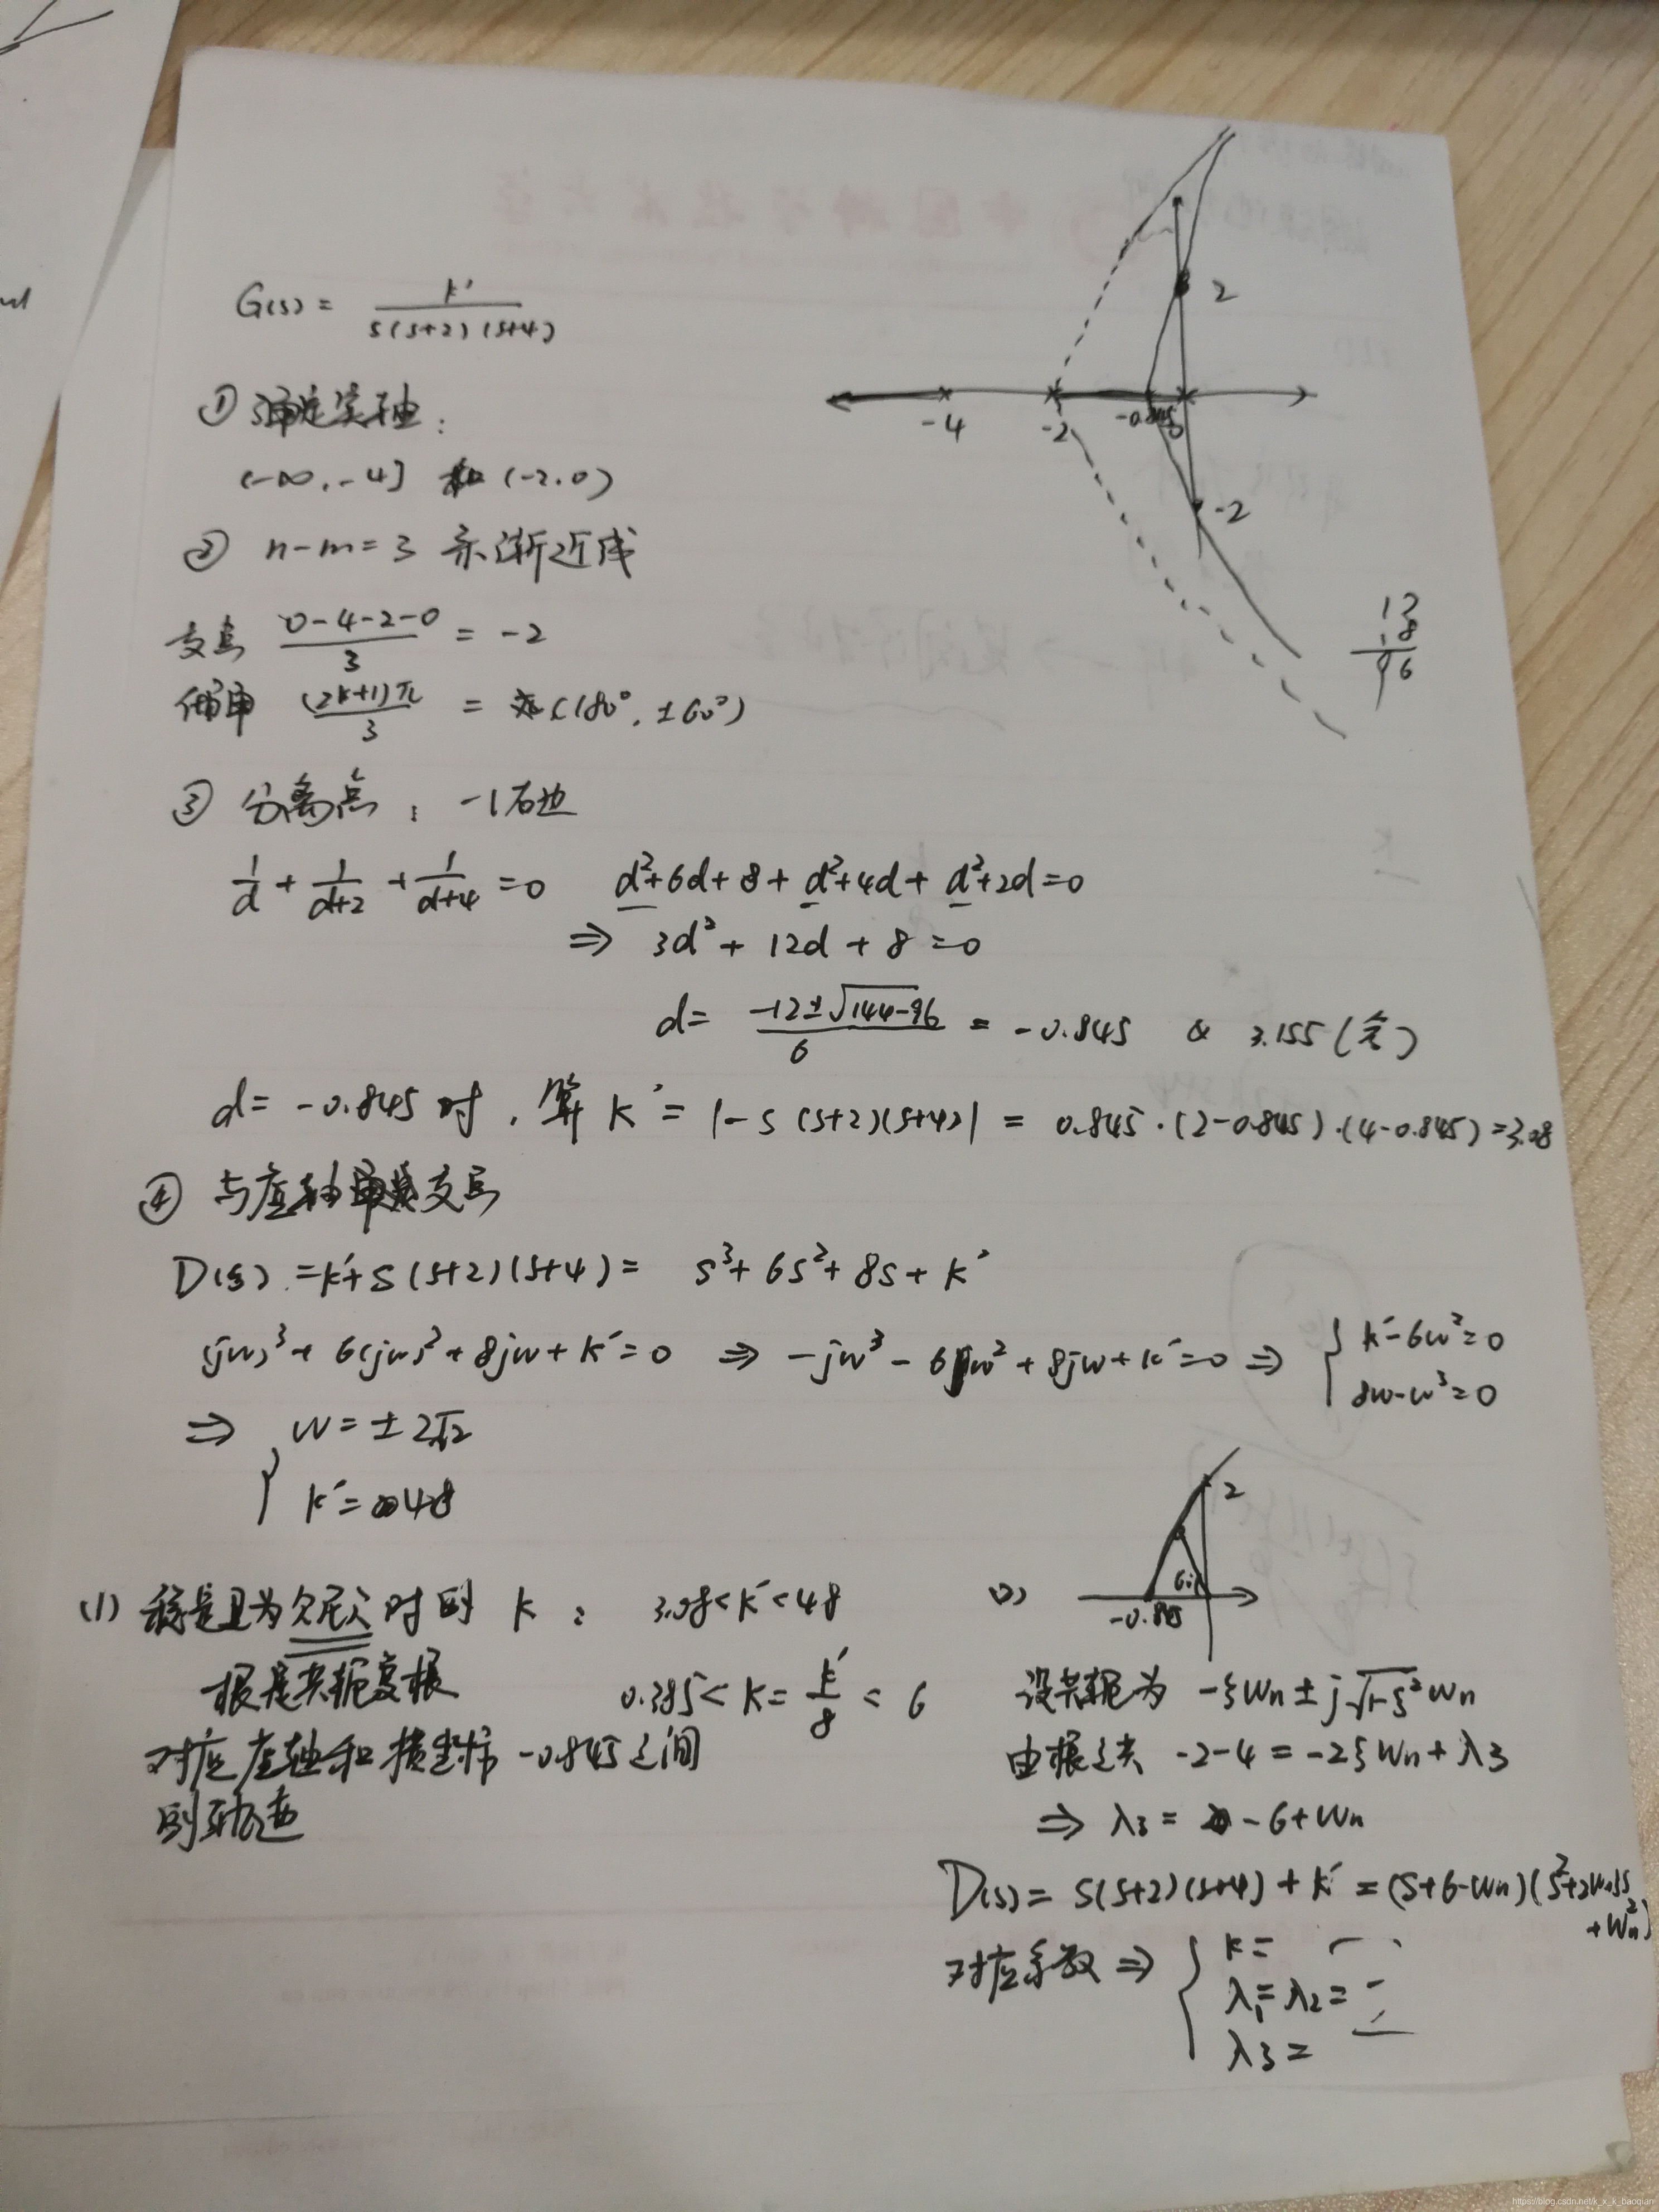 G(s) = k' / s(s+2)(s+4)
-4
-2
-0.845
0
2
-2
① 确定实轴:
(-∞,-4] 和 (-2,0)
② n-m=3 条渐近线
交点 (0-4-2-0)/3 = -2
倾角 (2k+1)π/3 = (180°, ±60°)
12
8
96
③ 分离点: -1右边
1/d + 1/(d+2) + 1/(d+4) =0 d²+6d+8+d²+4d+d²+2d=0
⇒ 3d²+12d+8=0
d= (-12±√(144-96))/6 = -0.845 & 3.155(舍)
d= -0.845 时, 算 K' = |-s(s+2)(s+4)| = 0.845·(2-0.845)·(4-0.845)=3.08
④ 与虚轴交点
D(s)=k'+s(s+2)(s+4)= s³+6s²+8s+k'
(jw)³+6(jw)²+8jw+k'=0 ⇒ -jw³-6w²+8jw+k'=0 ⇒ { k'-6w²=0
8w-w³=0
⇒ { w=±2√2
k'=48
2
60°
-0.845
(1) 稳定且为欠阻尼时的 k: 3.08<k'<48
(2)
根是共轭复根 0.385<K=k'/8<6
对应虚轴和横坐标-0.845之间
的轨迹
设共轭为 -ξWn±j√(1-ξ²)Wn
由根之和 -2-4=-2ξWn+λ3
⇒ λ3=-6+Wn
D(s)=s(s+2)(s+4)+k'=(s+6-Wn)(s²+2Wnξs
+Wn²)
对应系数 ⇒ { k=
λ1=λ2=
λ3=
https://blog.csdn.net/k_x_k_baoqian